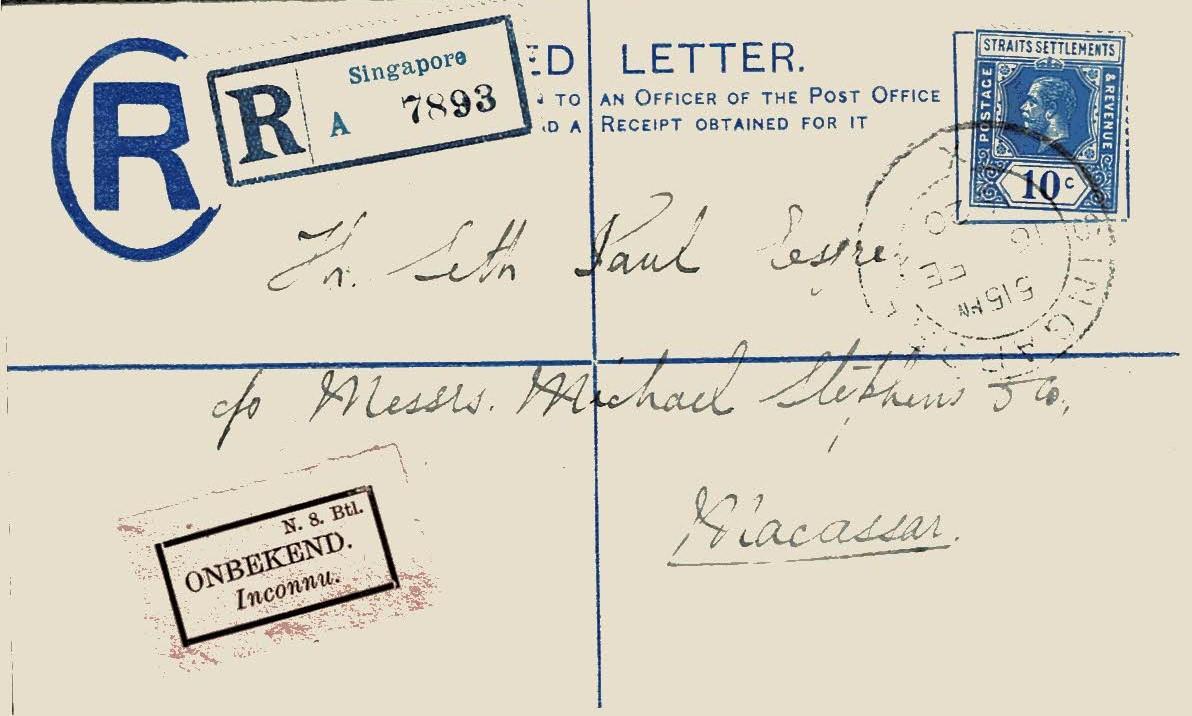 R
R
Singapore
A 7893
ED LETTER.
TO AN OFFICER OF THE POST OFFICE
D A RECEIPT OBTAINED FOR IT
STRAITS SETTLEMENTS
POSTAGE
& REVENUE
10c
SINGAP
X
5 15 PM
FE
16
20
Seth Paul
c/o Messrs. Michael Stephens & Co,
Macassar.
N. 8. Btl.
ONBEKEND.
Inconnu.